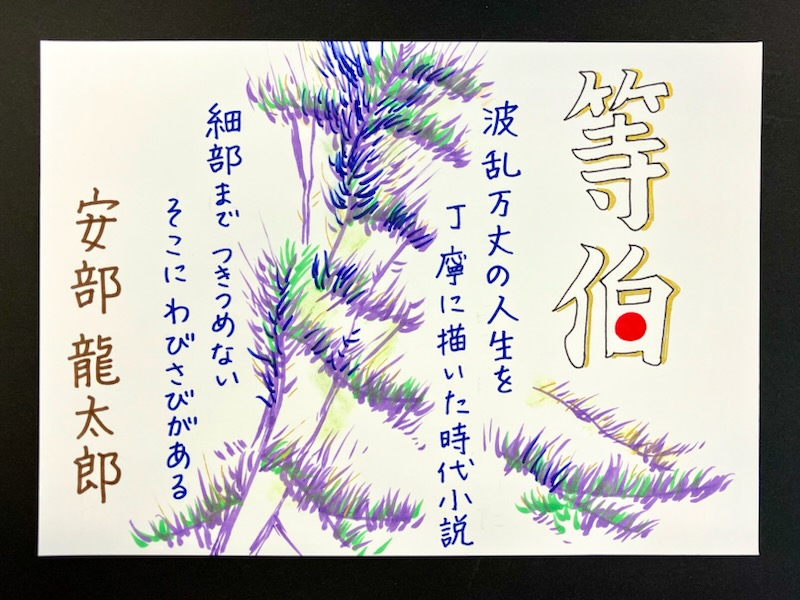 等伯
波乱万丈の人生を
丁寧に描いた時代小説
細部まで つきつめない
そこに わびさびがある
安部 龍太郎